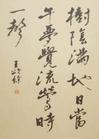 樹陰滿地日當
午夢覺流鶯時
一聲